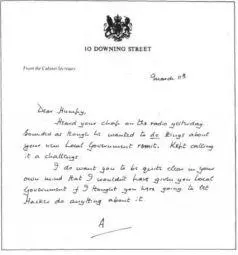 10 DOWNING STREET
From the Cabinet Secretary
March 11th
Dear Humphy,
Heard your chap on the radio yesterday.
Sounded as though he wanted to do things about
your new Local Government remit. Kept calling
it a challenge.
I do want you to be quite clear in your
own mind that I wouldn't have given you Local
Government if I thought you were going to let
Hacker do anything about it.
A